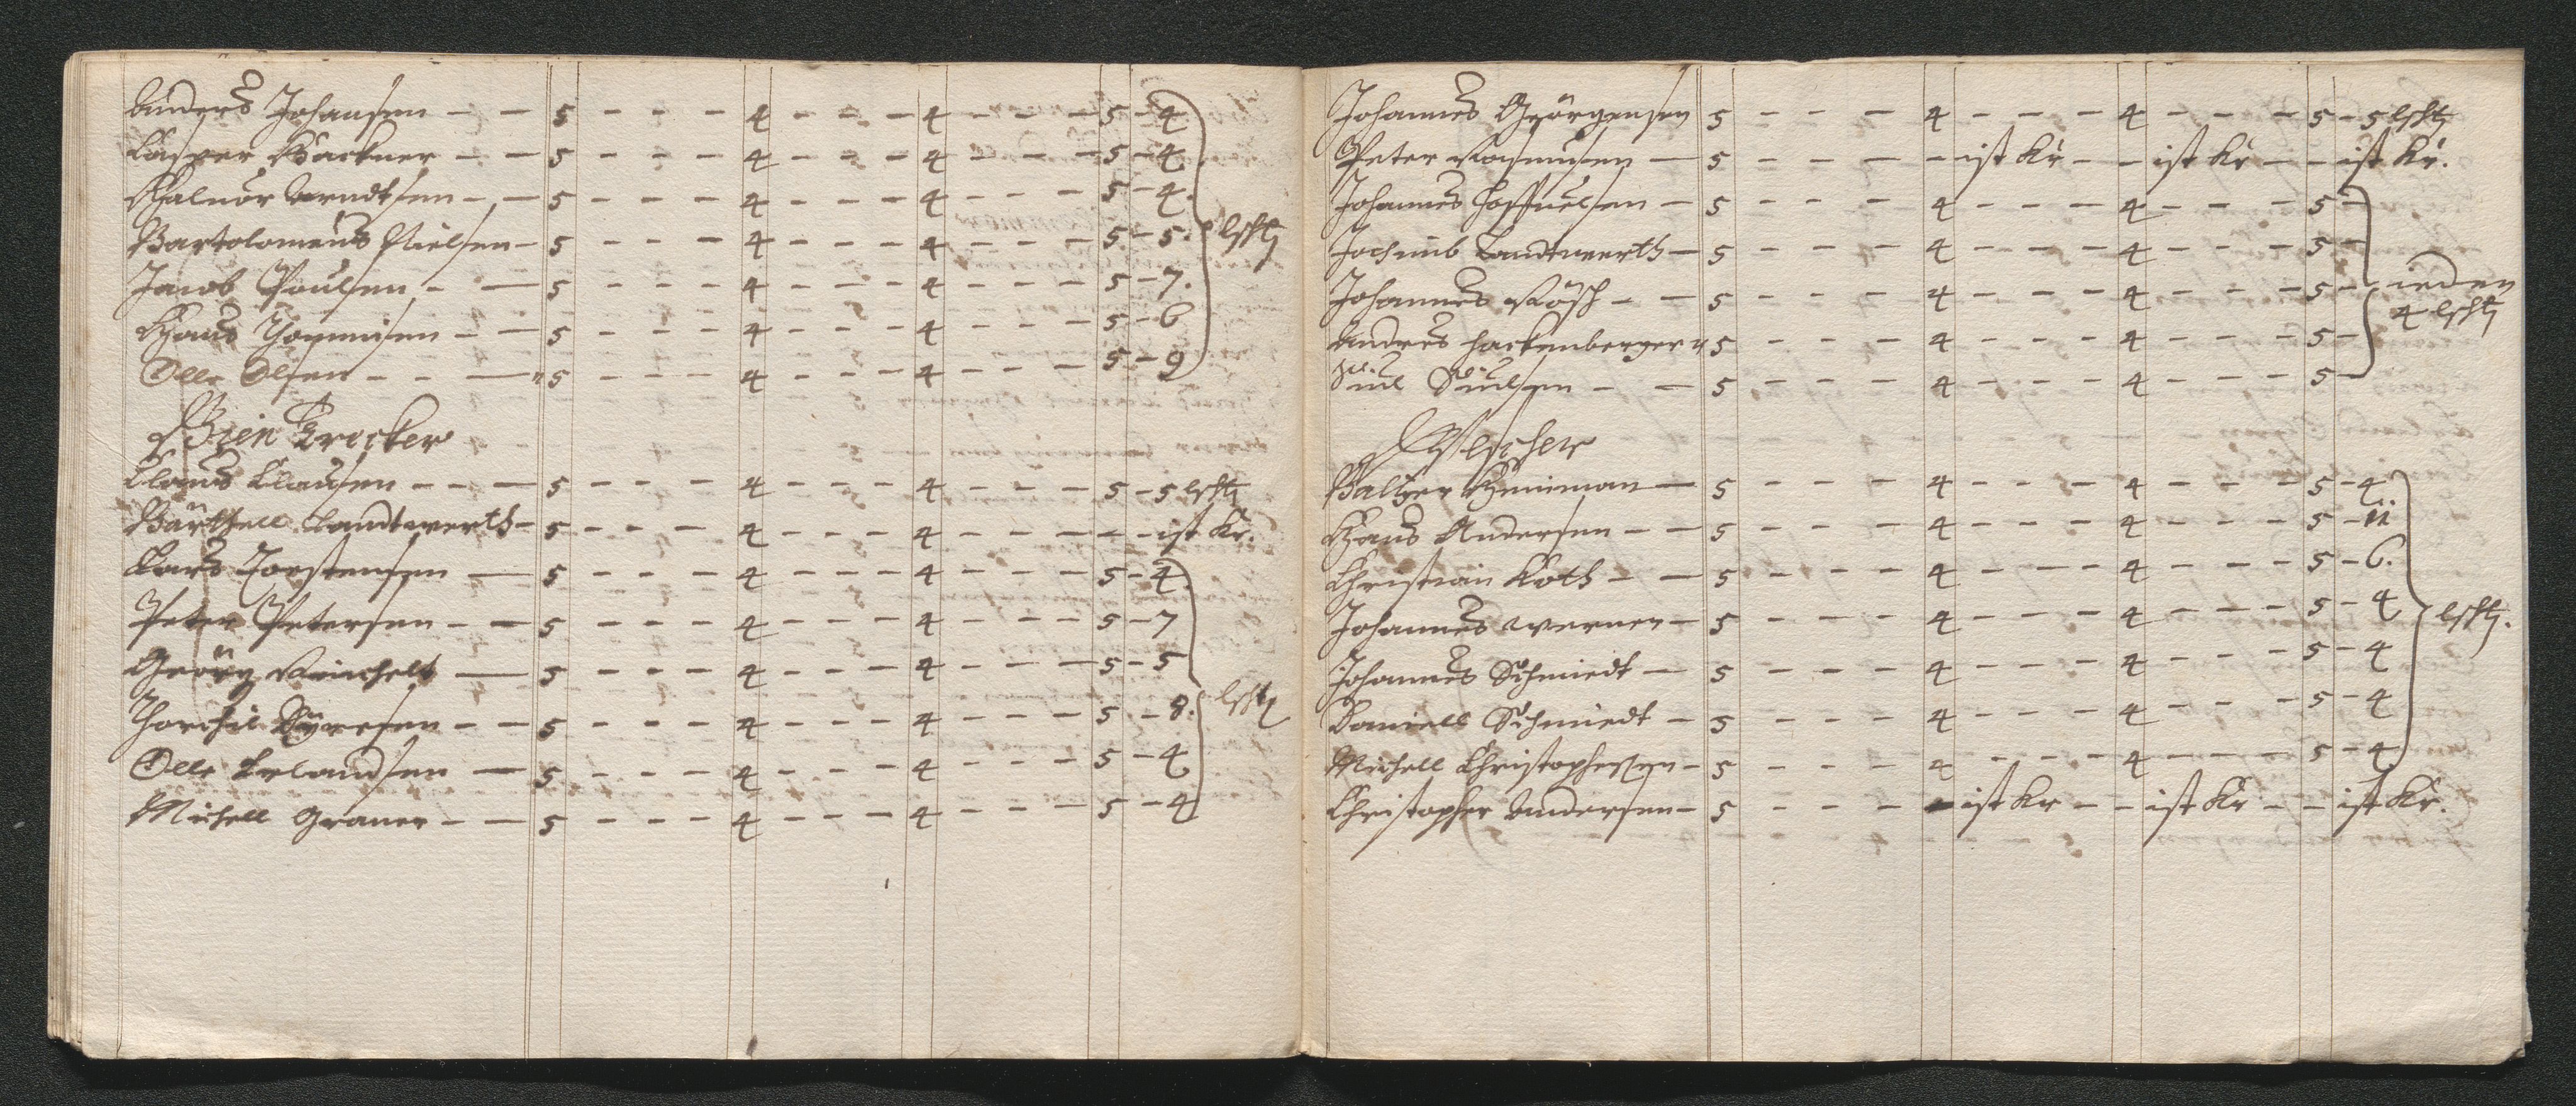 Anders Johansen - - 5 - - - 4 - - - 4 - - - 5 - 4
Casper Backner - - 5 - - - 4 - - - 4 - - - 5 - 4
Halvor Arndtsen - - 5 - - - 4 - - - 4 - - - 5 - 4.
Bartolomeus Nielsen - 5 - - - 4 - - - 4 - - - 5 - 5. lßhtz
Jacob Poulsen - - 5 - - - 4 - - - 4 - - - 5 - 7.
Hans Thommisen - - 5 - - - 4 - - - 4 - - - 5 - 6
Olle Olsen - - - 5 - - - 4 - - - 4 - - - 5 - 9
Claus Clausen - - - 5 - - - 4 - - - 4 - - - 5 - 5 lßhtz
Bärthell Landtwerth - 5 - - - 4 - - - 4 - - - - - ist Kr.
Lars Torstensen - 5 - - - 4 - - - 4 - - - 5 - 4
Peter Petersen - - 5 - - - 4 - - - 4 - - - 5 - 7
Geörg Reichelt - 5 - - - 4 - - - 4 - - - 5 - 5
Thorchil - - 5 - - - 4 - - - 4 - - - 5 - 8. lßhtz
Olle Erlandsen - 5 - - - 4 - - - 4 - - - 5 - 4
Michell Graner - - 5 - - - 4 - - - 4 - - - 5 - 4
Johannes Geörgensen 5 - - - 4 - - - 4 - - - 5 - 5 lßhtz
Peter Rasmusen - 5 - - - - ist Kr - - ist Kr - - ist Kr.
Johannes - 5 - - - 4 - - - 4 - - - 5 -
Jochimb Landtwerth - 5 - - - 4 - - - 4 - - - 5 -
Johannes Rösch - - 5 - - - 4 - - - 4 - - - 5 - ieden
4 lßhtz
Andres Hackenberger 5 - - - 4 - - - 4 - - - 5 -
Siul Siulsen - - 5 - - - 4 - - - 4 - - - 5 -
Wescher
Baltzer Hinniman - 5 - - - 4 - - - 4 - - - 5 - 4
Hans Andersen - - 5 - - - 4 - - - 4 - - - 5 - 11
Christian Koth - - 5 - - - 4 - - - 4 - - - 5 - 6.
Johannes Werner - 5 - - - 4 - - - 4 - - - 5 - 4 lßhtz.
Johannes Schmiedt - 5 - - - 4 - - - 4 - - - 5 - 4
Daniell Schmiedt - 5 - - - 4 - - - 4 - - - 5 - 4
Michell Christophersen - 5 - - - 4 - - - 4 - - - 5 - 4
Christopher Andersen - 5 - - - - ist Kr - - ist Kr - - ist Kr.